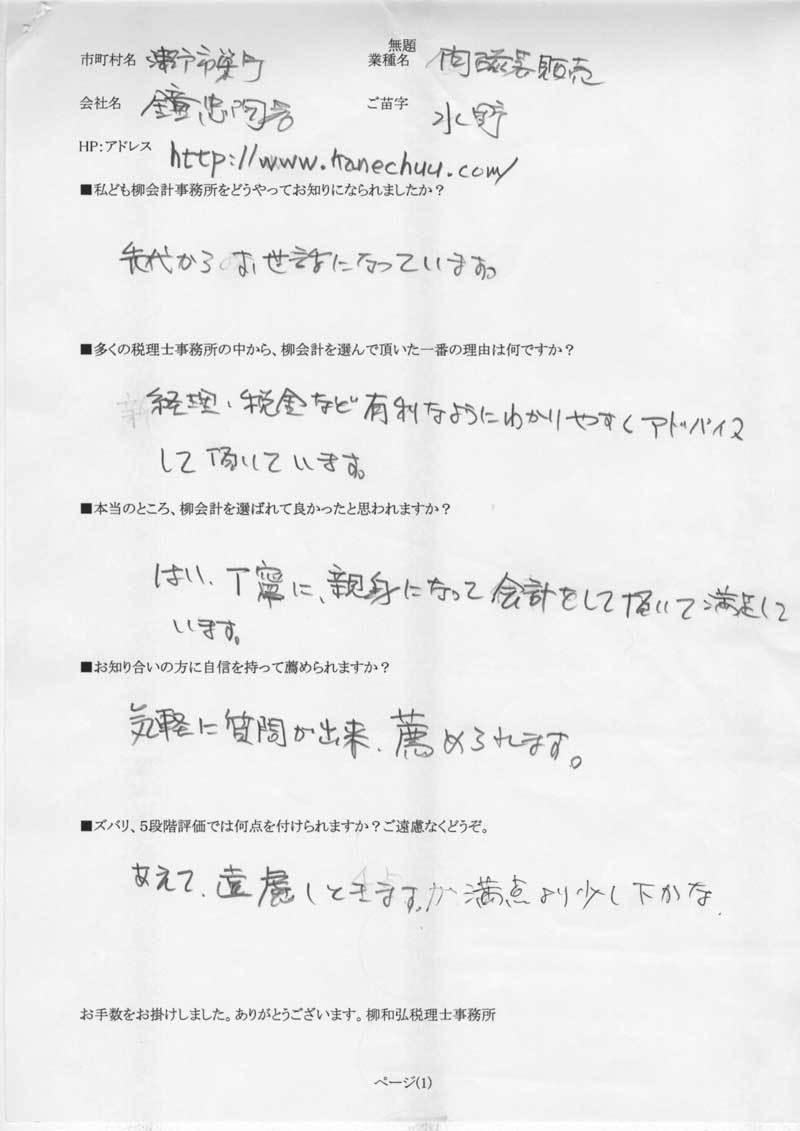 無題
市町村名 瀬戸市栄町 業種名 陶磁器販売
会社名 鐘忠陶苦 ご苗字 水野
HP:アドレス http://www.kanechuu.com/
■私ども柳会計事務所をどうやってお知りになられましたか?
先代からお世話になっています。
■多くの税理士事務所の中から、柳会計を選んで頂いた一番の理由は何ですか?
経理、税金など有利なようにわかりやすくアドバイス
して頂いています。
■本当のところ、柳会計を選ばれて良かったと思われますか?
はい、丁寧に、親身になって会計をして頂いて満足して
います。
■お知り合いの方に自信を持って薦められますか?
気軽に質問が出来、薦められます。
■ズバリ、5段階評価では何点を付けられますか?ご遠慮なくどうぞ。
あえて、遠慮しときます。が満点より少し下かな.
お手数をお掛けしました。ありがとうございます。柳和弘税理士事務所
ページ(1)